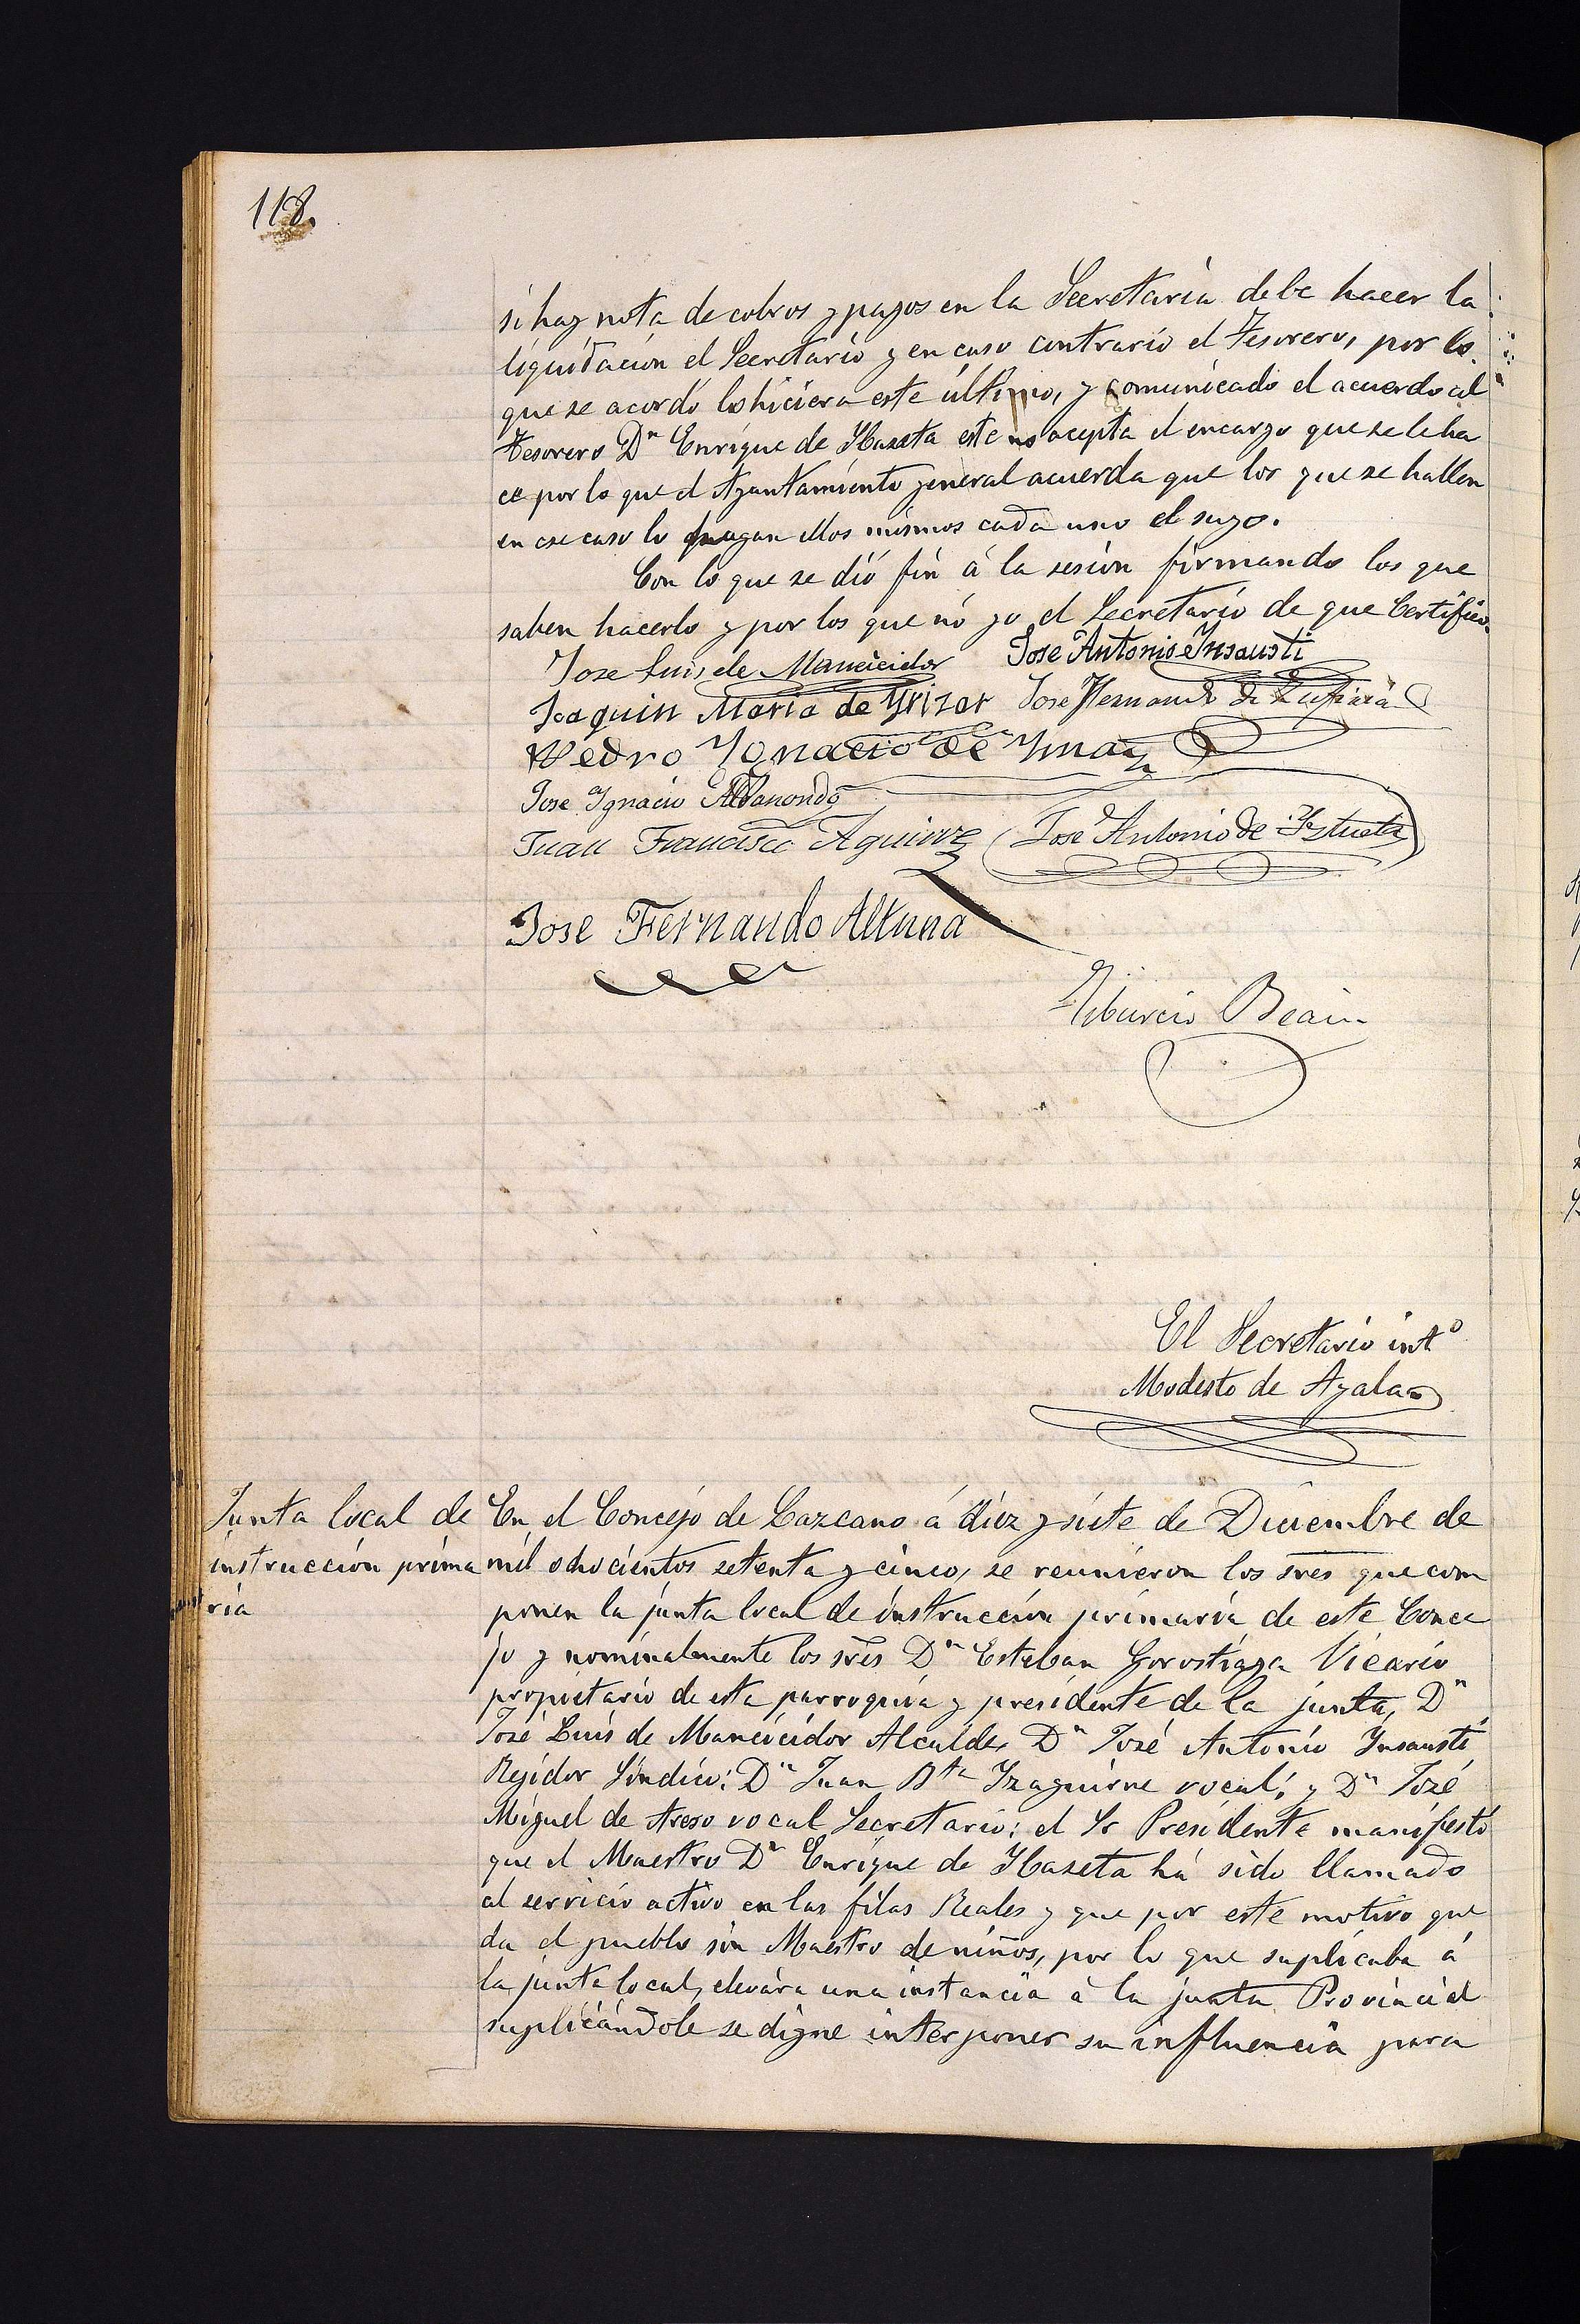 118.
si hay nota de cobros y pagos en la Secretaría debe hacer la
liquidación el Secretario y en caso contrario el Tesorero, por lo
que se acordó lo hiciera este último, y comunicado el acuerdo al
Tesorero Dn Enrique de Ybazeta este no acepta el encargo que se le ha
ce por lo que el Ayuntamiento general acuerda que los que se hallen
en ese caso lo hagan ellos mismos cada uno el suyo.
Con lo que se dió fin á la sesión firmando los que
saben hacerlo y por los que nó yo el Secretario de que Certifico.
Jose Luis de Mancicidor Jose Antonio Insausti
Joaquin Maria de Yrizar Jose Fernando de
Pedro Ygnacio de Ymaz
Jose Ygnacio
Juan Francisco Aguirre Jose Antonio de Iztueta
Jose Fernando Altuna
Tiburcio Beain
El Secretario intº
Modesto de Ayala
Junta local de
instrucción prima
ria
En el Concejo de Lazcano á diez y siete de Diciembre de
mil ochocientos setenta y cinco, se reunieron los sres que com
ponen la junta local de instrucción primaria de este Conce
jo y nominalmente los sres Dn Esteban Gorostiaga Vicario
propietario de esta parroquia y presidente de la junta, Dn
José Luis de Mancicidor Alcalde, Dn José Antonio Ynsausti
Regidor Síndico: Dn Juan Bta Yzaguirre vocal; y Dn José
Miguel de Areso vocal Secretario: el Sr Presidente manifestó
que el Maestro Dn Enrique de Ybazeta há sido llamado
al servicio activo en las filas Reales y que por este motivo que
da el pueblo sin Maestro de niños, por lo que suplicaba á
la junta local, elevára una instancia á la junta Provincial
suplicándole se digne interponer su influencia para